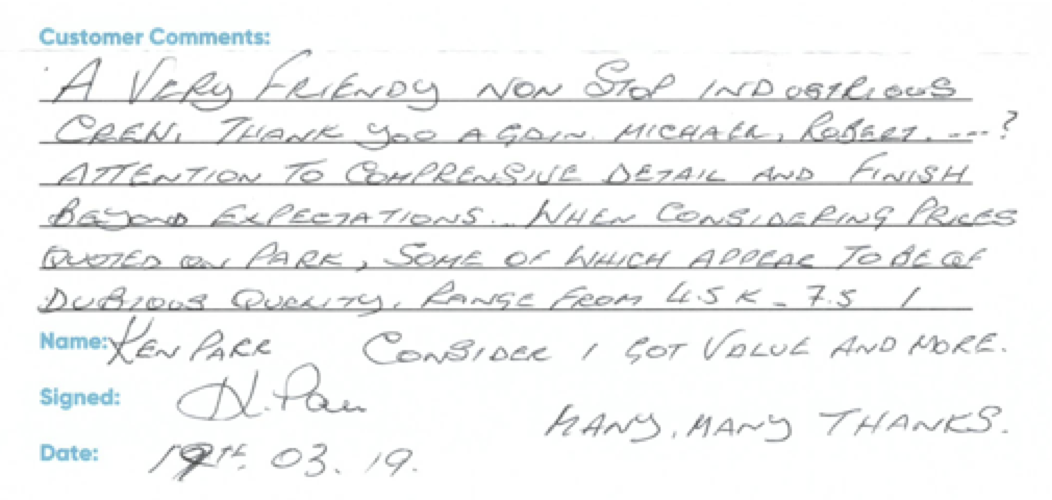 Customer Comments:
A VERY FRIENDY NON STOP INDUSTRIOUS
CREW. THANK YOU AGAIN. MICHAEL, ROBERT. ---?
ATTENTION TO COMPRENSIVE DETAIL AND FINISH
BEYOND EXPECTATIONS.. WHEN CONSIDERING PRICES
QUOTED ON PARK, SOME OF WHICH APPEAR TO BE OF
DUBIOUS QUALITY, RANGE FROM 4.5 K - 7.5 I
Name: KEN PARR CONSIDER I GOT VALUE AND MORE.
Signed: K. Parr
MANY, MANY THANKS.
Date: 19TH. 03. 19.